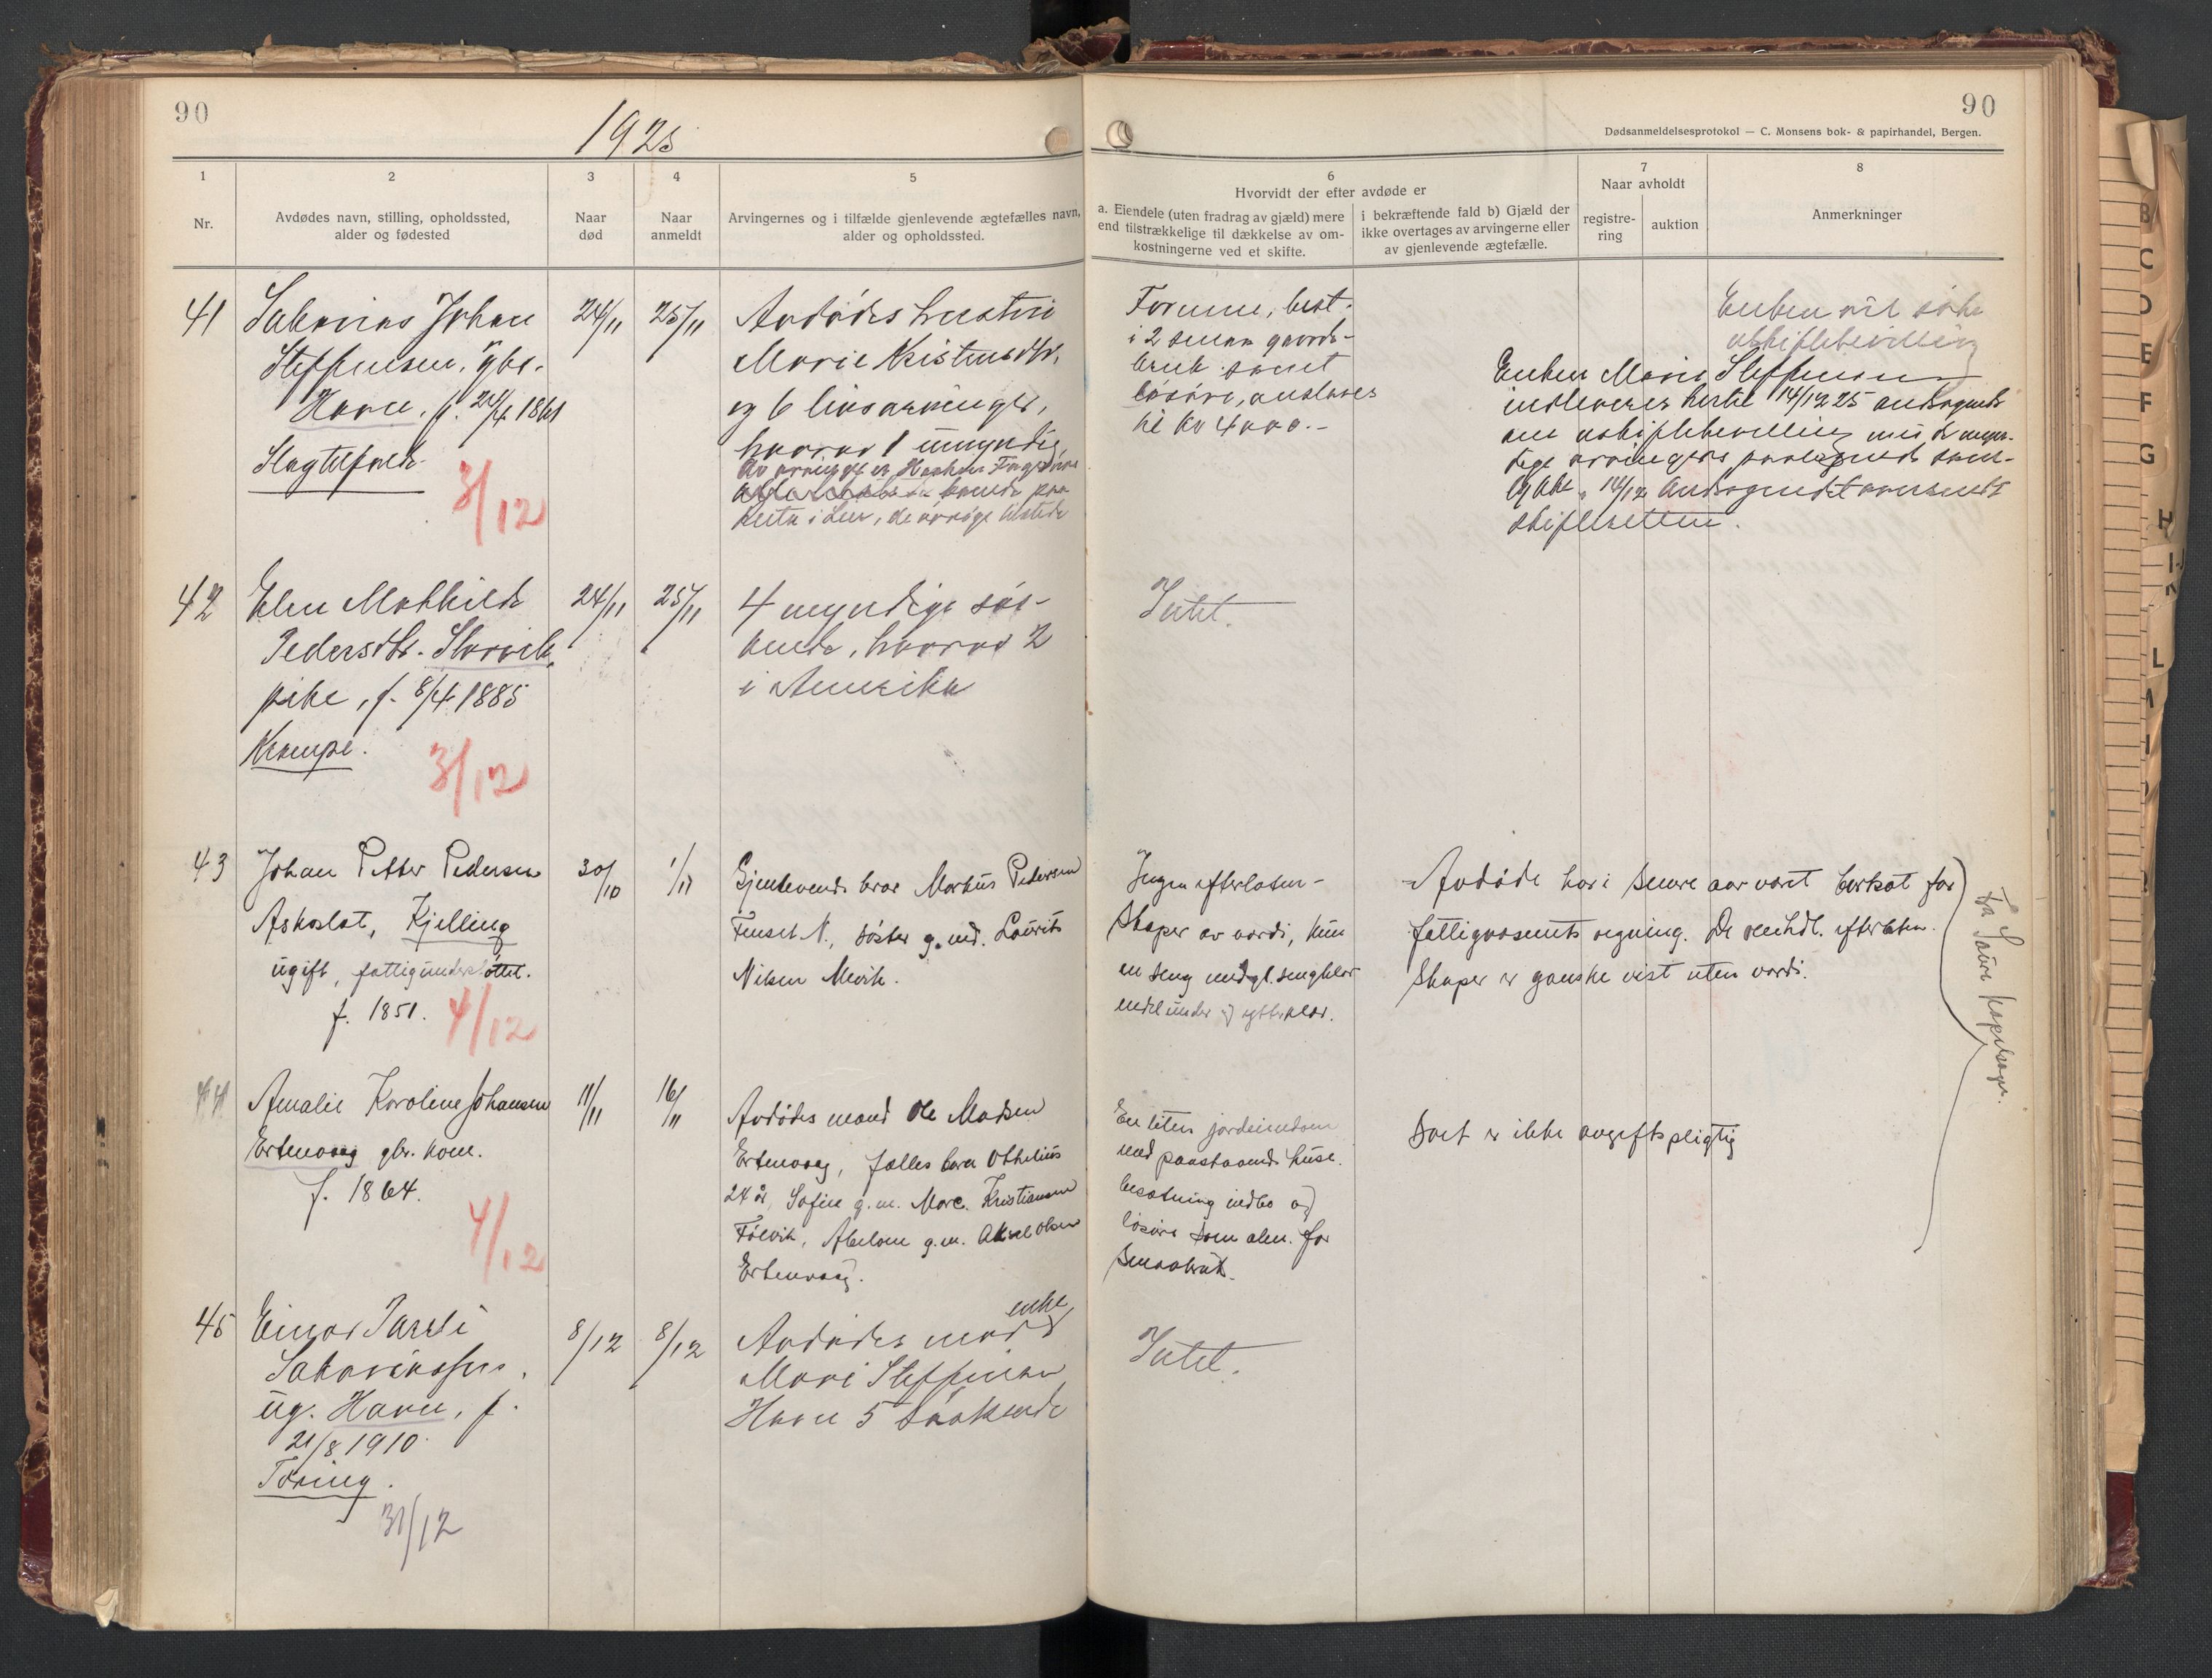 90
1925
90
Dødsanmeldelsesprotokol — C. Monsens bok- & papirhandel, Bergen.
1
Nr.
2
Avdødes navn, stilling, opholdssted,
alder og fødested
3
Naar
død
4
Naar
anmeldt
5
Arvingernes og i tilfælde gjenlevende ægtefælles navn,
alder og opholdssted.
6
Hvorvidt der efter avdøde er
a. Eiendele (uten fradrag av gjæld) mere
end tilstrækkelige til dækkelse av om-
kostningerne ved et skifte.
i bekræftende fald b) Gjæld der
ikke overtages av arvingerne eller
av gjenlevende ægtefælle.
7
Naar avholdt
registre-
ring
auktion
8
Anmerkninger
41
Sakarias Johan
Steffensen, gbr.
Havn, f. 24/4 1861
3/12
24/11
25/11
Avdødes hustru
Marie Kristensdtr.
og 6 livsarvinger,
hvorav 1 umyndig
i Leir, de øvrige tilstede
Formue, best.
i 2 smaa gaards-
bruk samt
løsøre, anslaaes
til kr 4000.-
Enken vil søke
uskiftebevilling
Enken Marie Steffensen
indleverer hertil 14/12 25 andragende
om uskiftebevilling med de myn-
dige arvingers paategnede sam-
tykke. 14/12 Andragendet oversendt
skifteretten.
42
Elen Mathilde
Pedersdtr. Storvik,
pike, f. 8/4 1885
3/12
24/11
25/11
4 myndige søs-
kende, hvorav 2
i Amerika
Intet.
43
Johan Petter Pedersen
Kjelling
ugift, fattigunderstøttet.
f. 1851.
4/12
30/10
1/11
Gjenlevende bror Markus Pedersen
søster g. md. Laurits
Nilsen Mevik.
Ingen efterladen-
skaper av værdi, kun
en seng med gl. sengklær
endel under og ytterklær.
Avdøde har i senere aar været forkost for
fattigvæsenets regning. De omhdl. efterladen-
skaper er ganske vist uten værdi.
44
Amalie Karoline Johansen
Ertenvaag gbr. kone.
f. 1864.
4/12
11/11
16/11
Avdødes mand Ole Madsen
Ertenvaag, fælles barn Othelius
24 år, Sofie g.m. Marc. Kristiansen
g.m. Aksel Olsen
Ertenvaag.
En liten jordeiendom
med paastaaende huse.
besætning indbo og
løsøre som alm. for
smaabruk.
Boet er ikke avgiftspligtig
Fra Saura kapelsogn.
45
Einar Pareli
Sakariassen,
ug. Havn, f.
21/8 1910.
Toring.
31/12
8/12
8/12
Avdødes mor enke
Mari Steffensen
Havn 5 søskende
Intet.